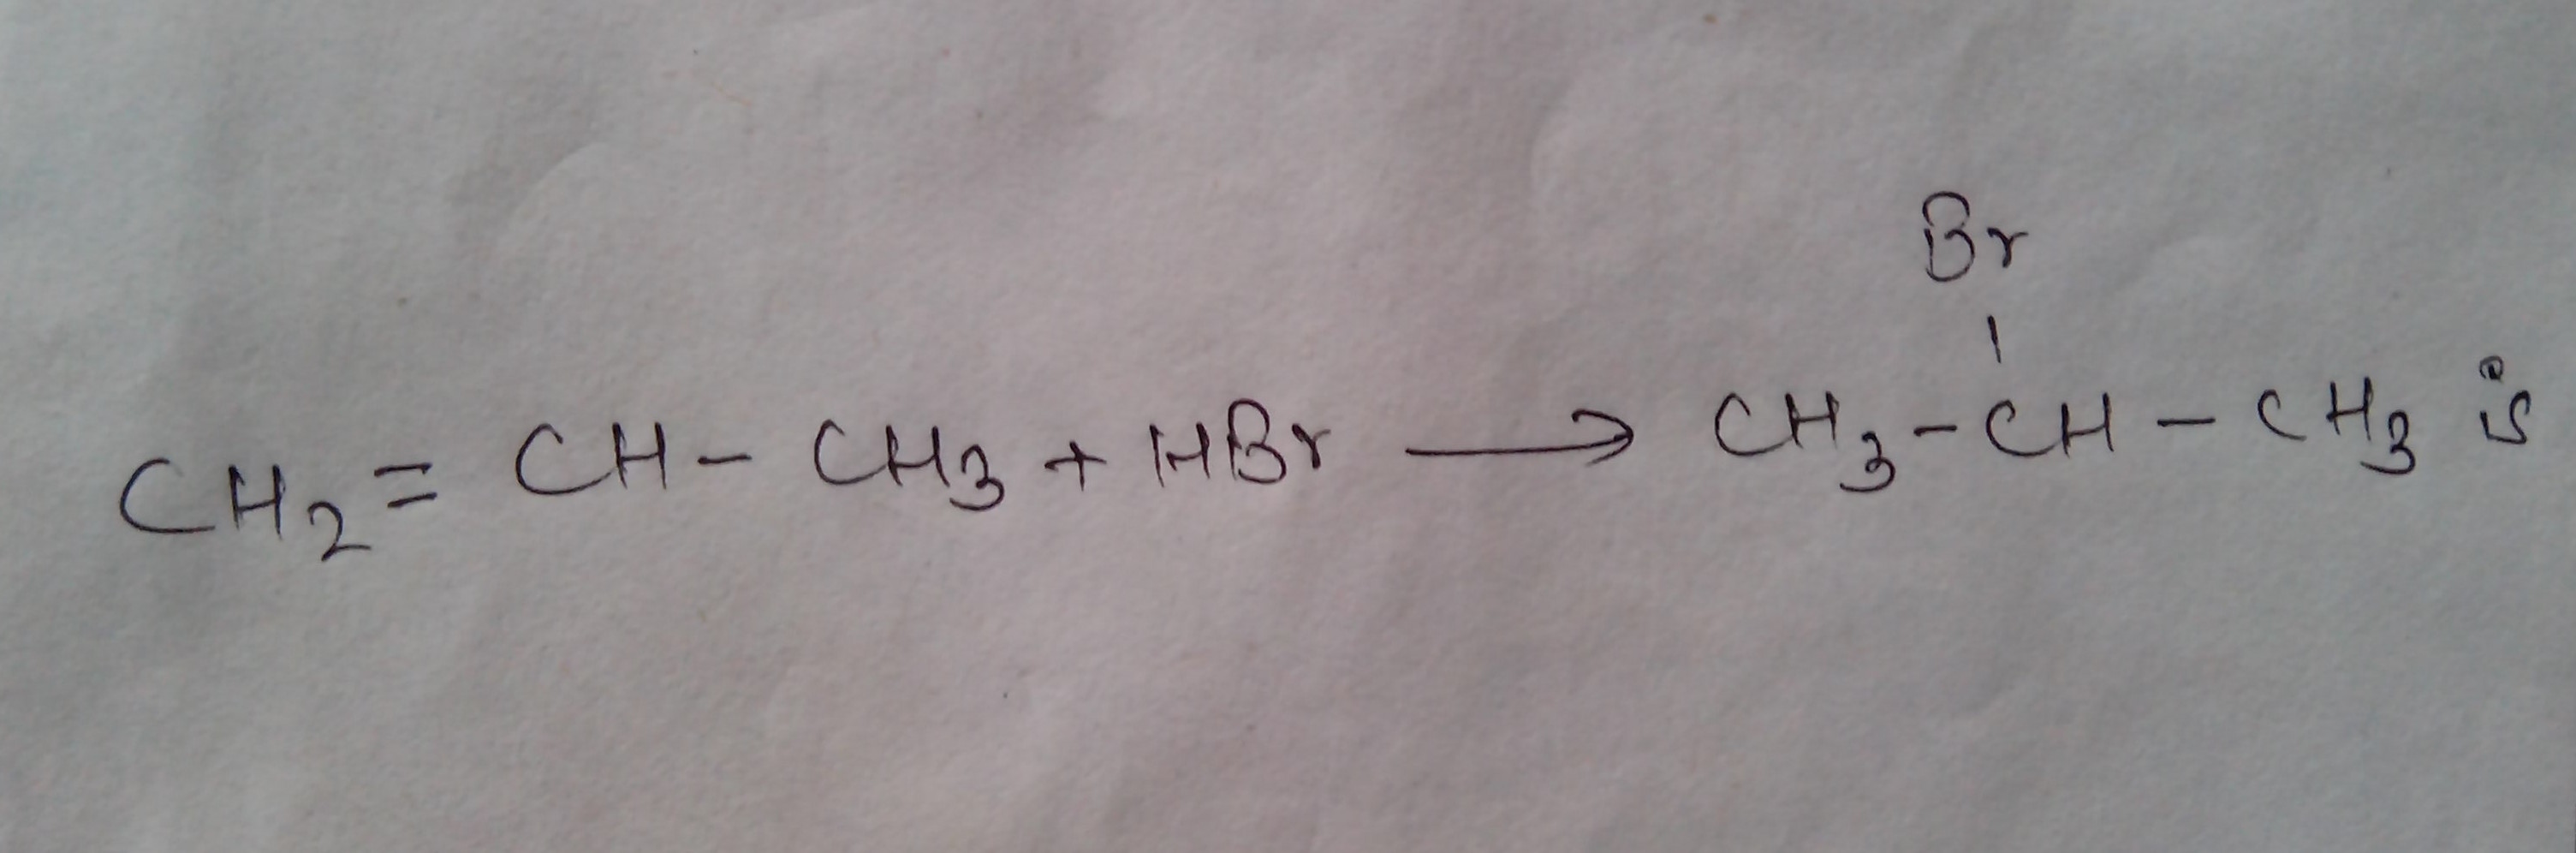 Br
CH2 = CH - CH3 + HBr → CH3 - CH - CH3 is